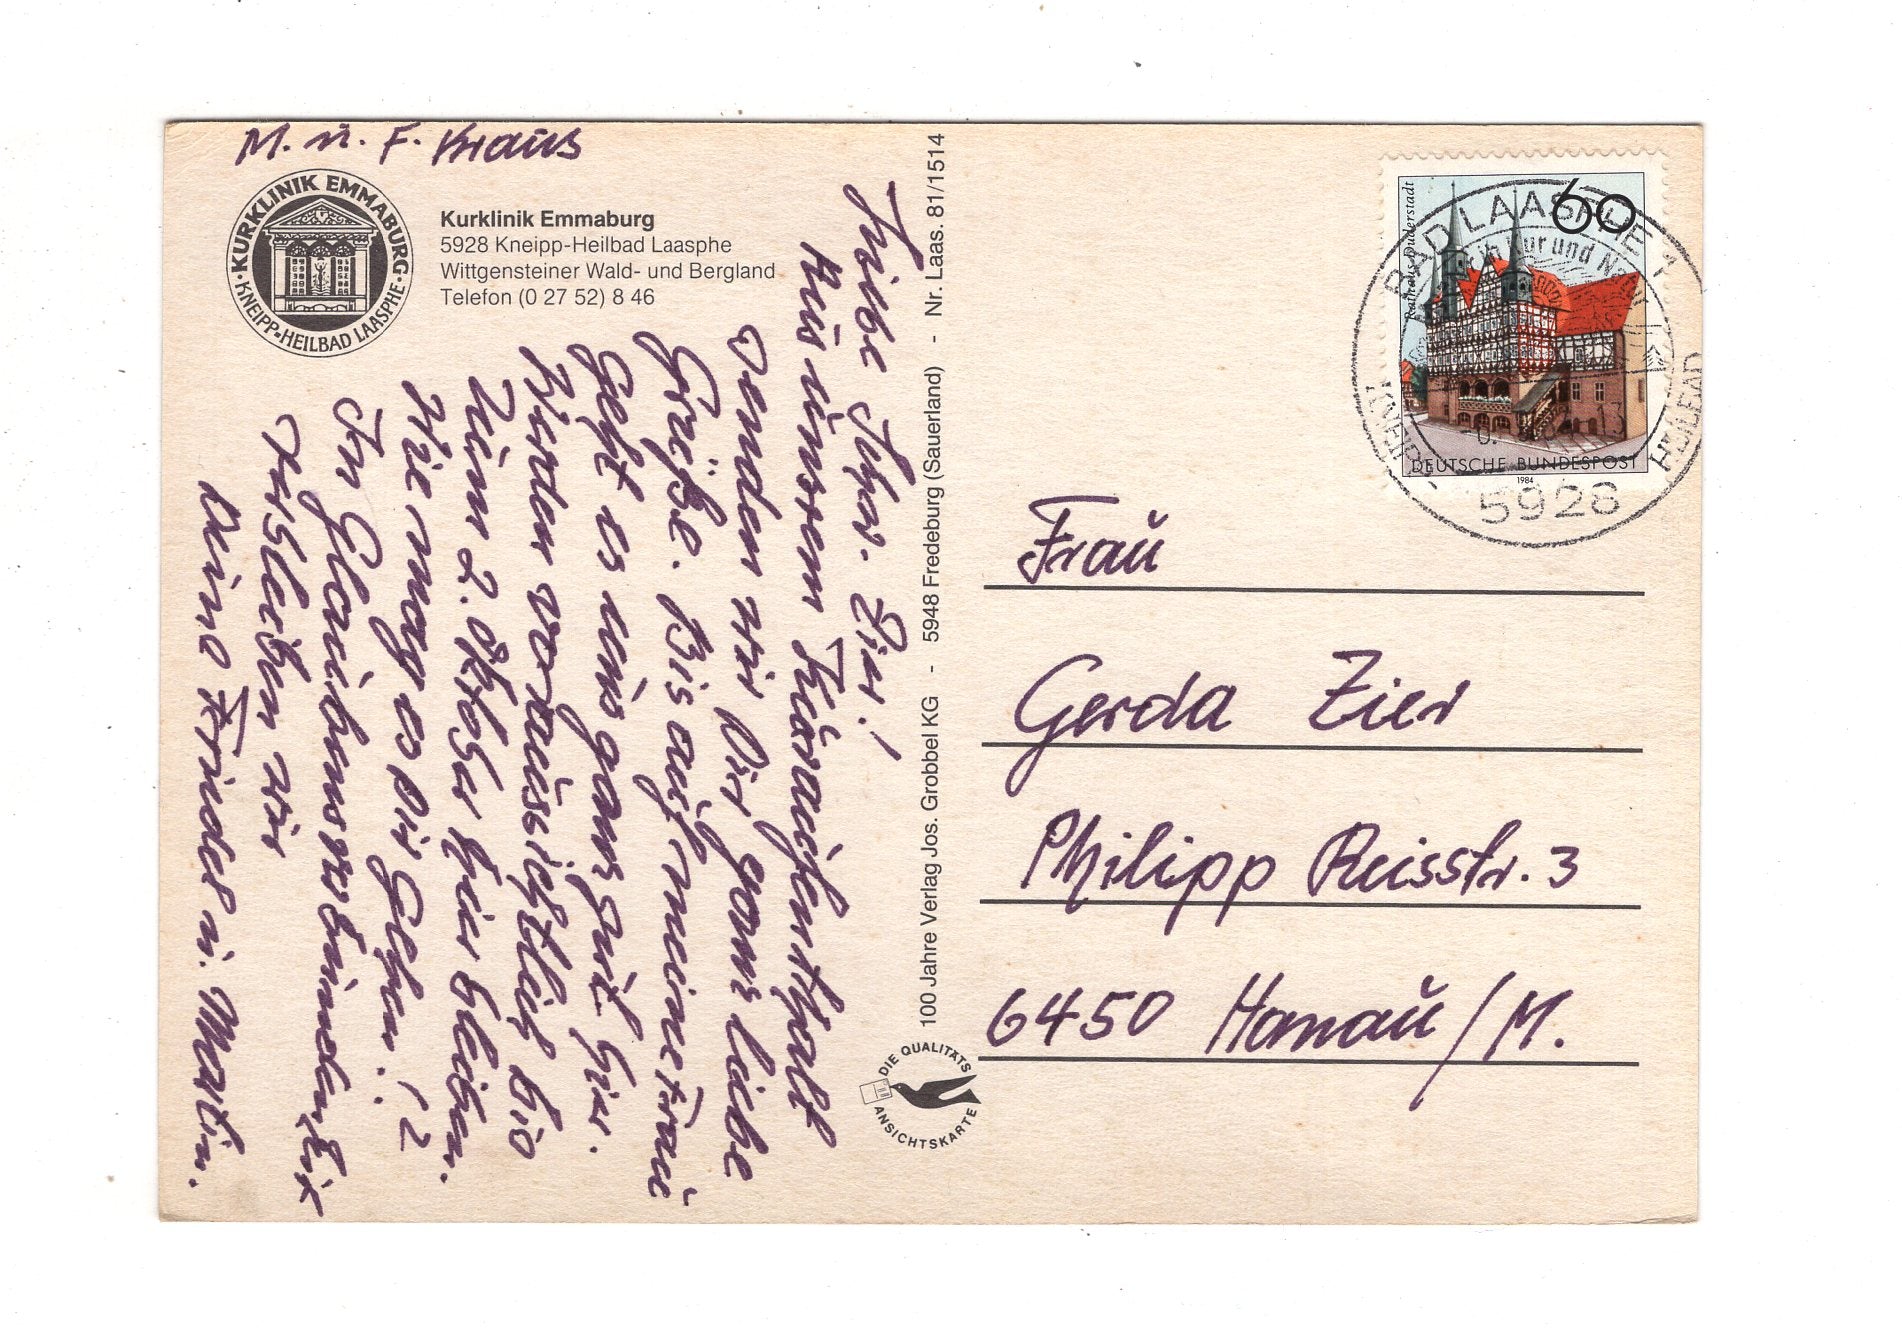 M. u. F. Kraus
KURKLINIK EMMABURG
KNEIPP-HEILBAD LAASPHE
Kurklinik Emmaburg
5928 Kneipp-Heilbad Laasphe
Wittgensteiner Wald- und Bergland
Telefon (0 27 52) 8 46
Liebe Schw. Zier!
Aus unserem Kuraufenthalt
senden wir Dir ganz liebe
Grüße. Bis auf meine Frau
geht es uns ganz gut hier.
Werden voraussichtlich bis
zum 2. Oktober hier bleiben.
Wie mag es Dir gehen?
Im Glauben verbunden
verbleiben wir
Deine Frieda u. Martin.
100 Jahre Verlag Jos. Grobbel KG - 5948 Fredeburg (Sauerland) - Nr. Laas. 81/1514
DIE QUALITÄTS
ANSICHTSKARTE
60
Rathaus Duderstadt
DEUTSCHE BUNDESPOST
1984
BAD LAASPHE 1
KNEIPP-HEILBAD
5928
Frau
Gerda Zier
Philipp Reisstr. 3
6450 Hanau/M.